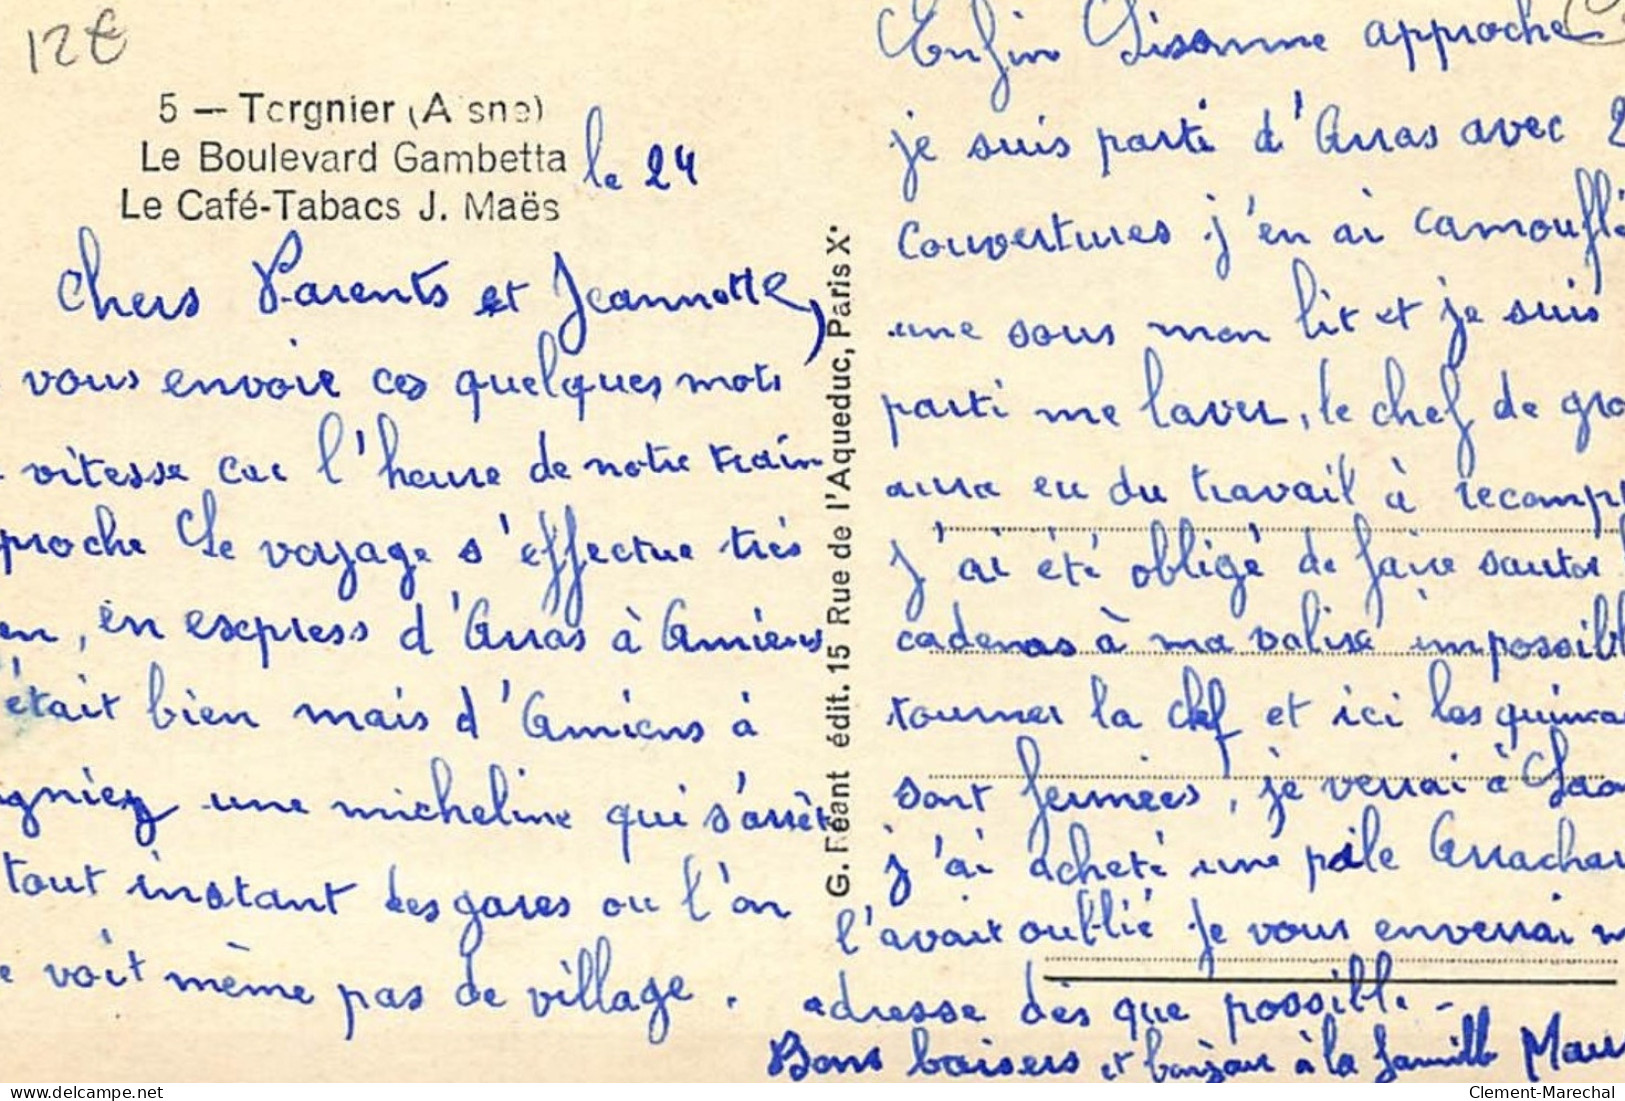 12€
5 — Tergnier (Aisne)
Le Boulevard Gambetta
Le Café-Tabacs J. Maës
le 24
Chers Parents et Jeannette,
vous envoie ces quelques mots
vitesse car l'heure de notre train
proche Le voyage s'effectue très
en, en express d'Arras à Amiens
était bien mais d'Amiens à
gniez une micheline qui s'arrêt
tout instant des gares ou l'on
e voit même pas de village.
G. Réant édit. 15 Rue de l'Aqueduc, Paris Xe
Enfin Lisonne approche
je suis parti d'Arras avec 2
couvertures j'en ai camouflé
une sous mon lit et je suis
parti me laver, le chef de gro
aura eu du travail à recompt
J'ai été obligé de faire sauter l
cadenas à ma valise impossibl
tourner la clef et ici les quinca
sont fermées, je verrai à Laon
j'ai acheté une pile à Arras
l'avait oublié Je vous enverrai m
adresse dès que possible -
Bons baisers et bonjour à la famille Maur
Clement-Marechal